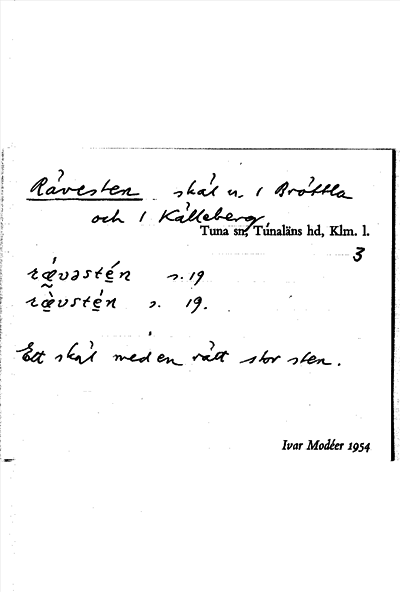 Rävesten skäl n. i Bröttla
och i Källeberg,
Tuna sn, Tunaläns hd, Klm. l.
3
rǽvəstén s. 19
rǽvstén s. 19.
Ett skäl med en rätt stor sten.
Ivar Modéer 1954